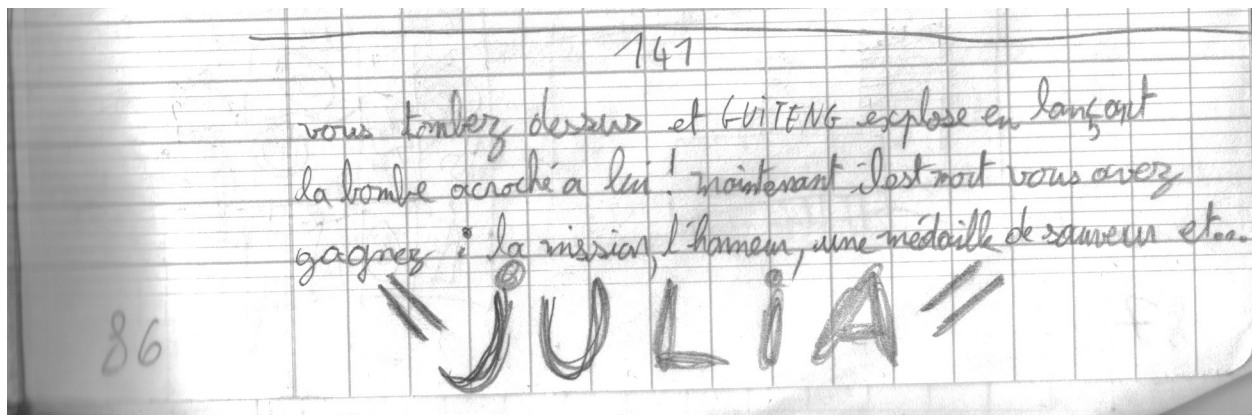 141
vous tombez dessus et GUiTENG explose en lançant
la bombe acroché a lui ! maintenant il est mort vous avez
gagnez : la mission, l'honneur, une médaille de sauveur et...
"JULiA"
86